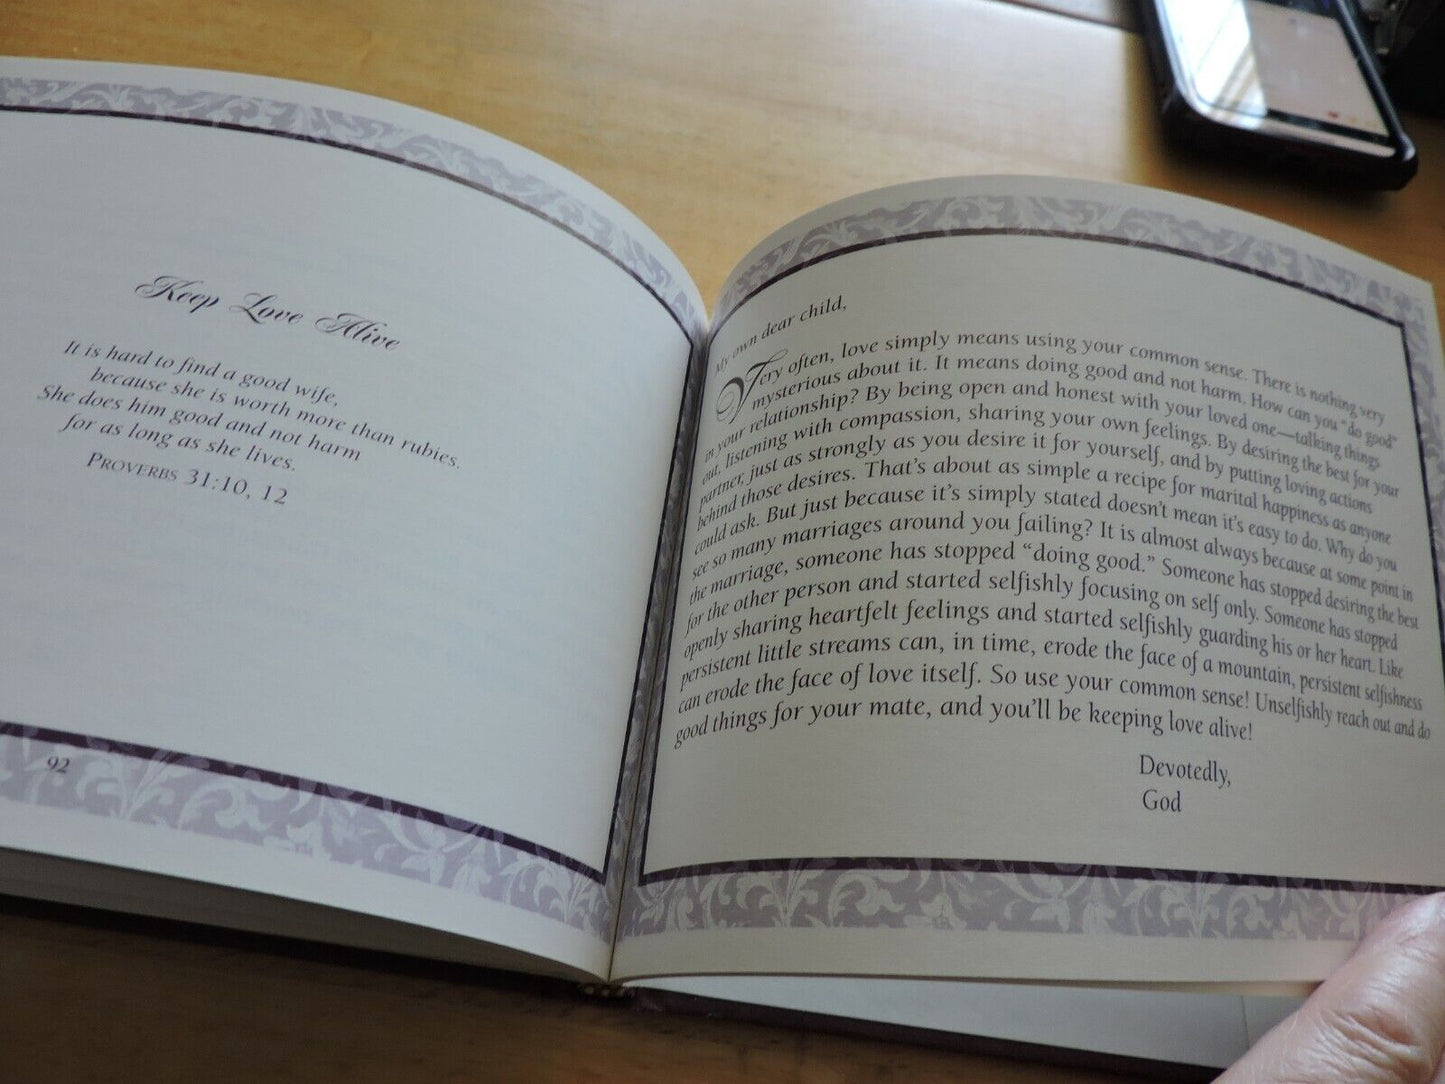 Keep Love Alive
It is hard to find a good wife,
because she is worth more than rubies.
She does him good and not harm
for as long as she lives.
PROVERBS 31:10, 12
92
My own dear child,
Very often, love simply means using your common sense. There is nothing very
mysterious about it. It means doing good and not harm. How can you “do good”
in your relationship? By being open and honest with your loved one—talking things
out, listening with compassion, sharing your own feelings. By desiring the best for your
partner, just as strongly as you desire it for yourself, and by putting loving actions
behind those desires. That’s about as simple a recipe for marital happiness as anyone
could ask. But just because it’s simply stated doesn’t mean it’s easy to do. Why do you
see so many marriages around you failing? It is almost always because at some point in
the marriage, someone has stopped “doing good.” Someone has stopped desiring the best
for the other person and started selfishly focusing on self only. Someone has stopped
openly sharing heartfelt feelings and started selfishly guarding his or her heart. Like
persistent little streams can, in time, erode the face of a mountain, persistent selfishness
can erode the face of love itself. So use your common sense! Unselfishly reach out and do
good things for your mate, and you’ll be keeping love alive!
Devotedly,
God